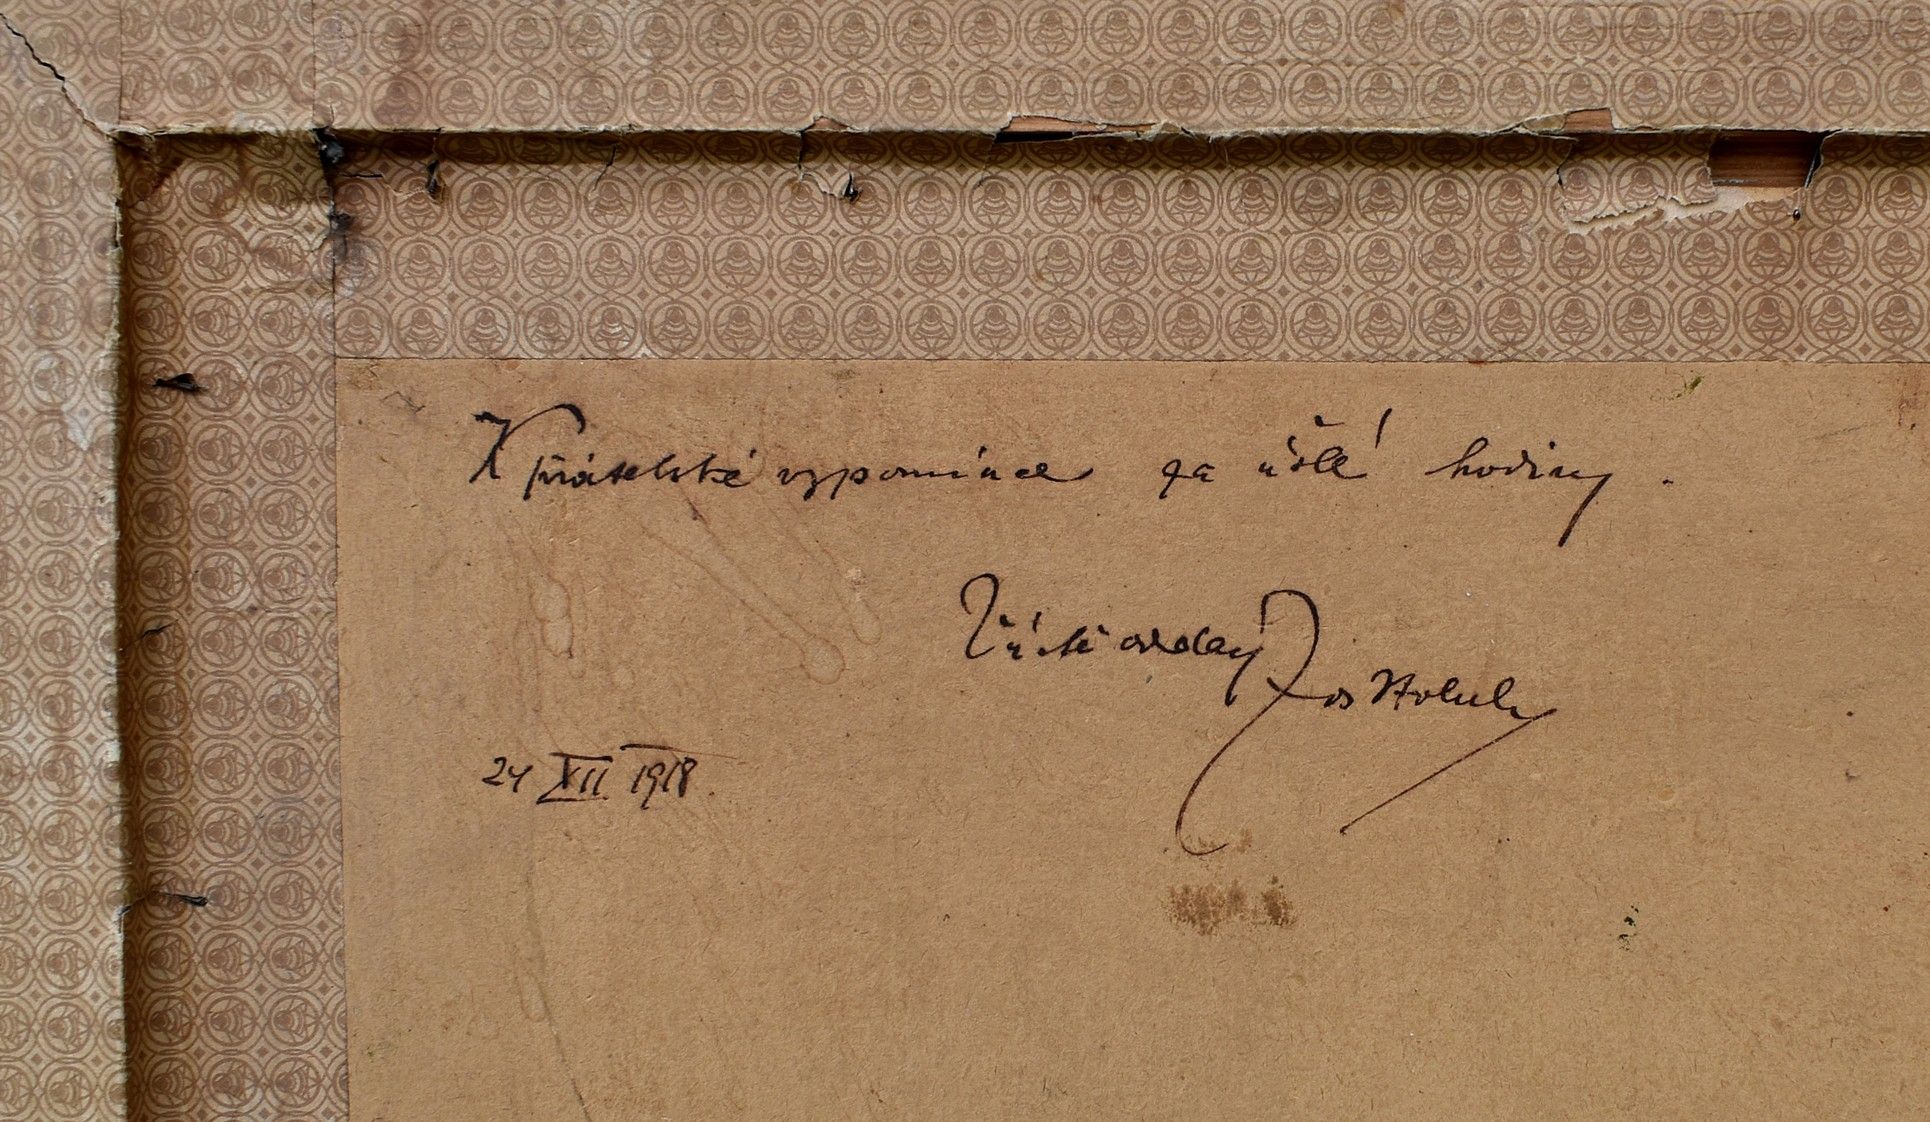 K přátelské vzpomínce za ušlé hodiny.
Vždy oddaný Jos Holub
24 XII 1918.